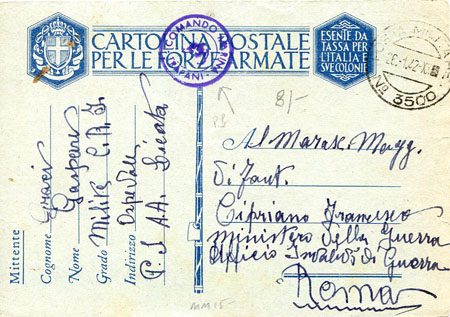 CARTOLINA POSTALE
PER LE FORZE ARMATE
COMANDO MARINA
TRAPANI
ESENTE DA
TASSA PER
L'ITALIA
E SUE COLONIE
No 3500
8/-
PB
Mittente
Cognome Graci
Nome Gaspare
Grado Milite C.A.T.
Indirizzo Ospedale
P. S. A.A. Licata
Al Magg.
Di Fant.
Cipriano Francesco
Ministero della Guerra
Ufficio Invalidi di Guerra
Roma
MM15-